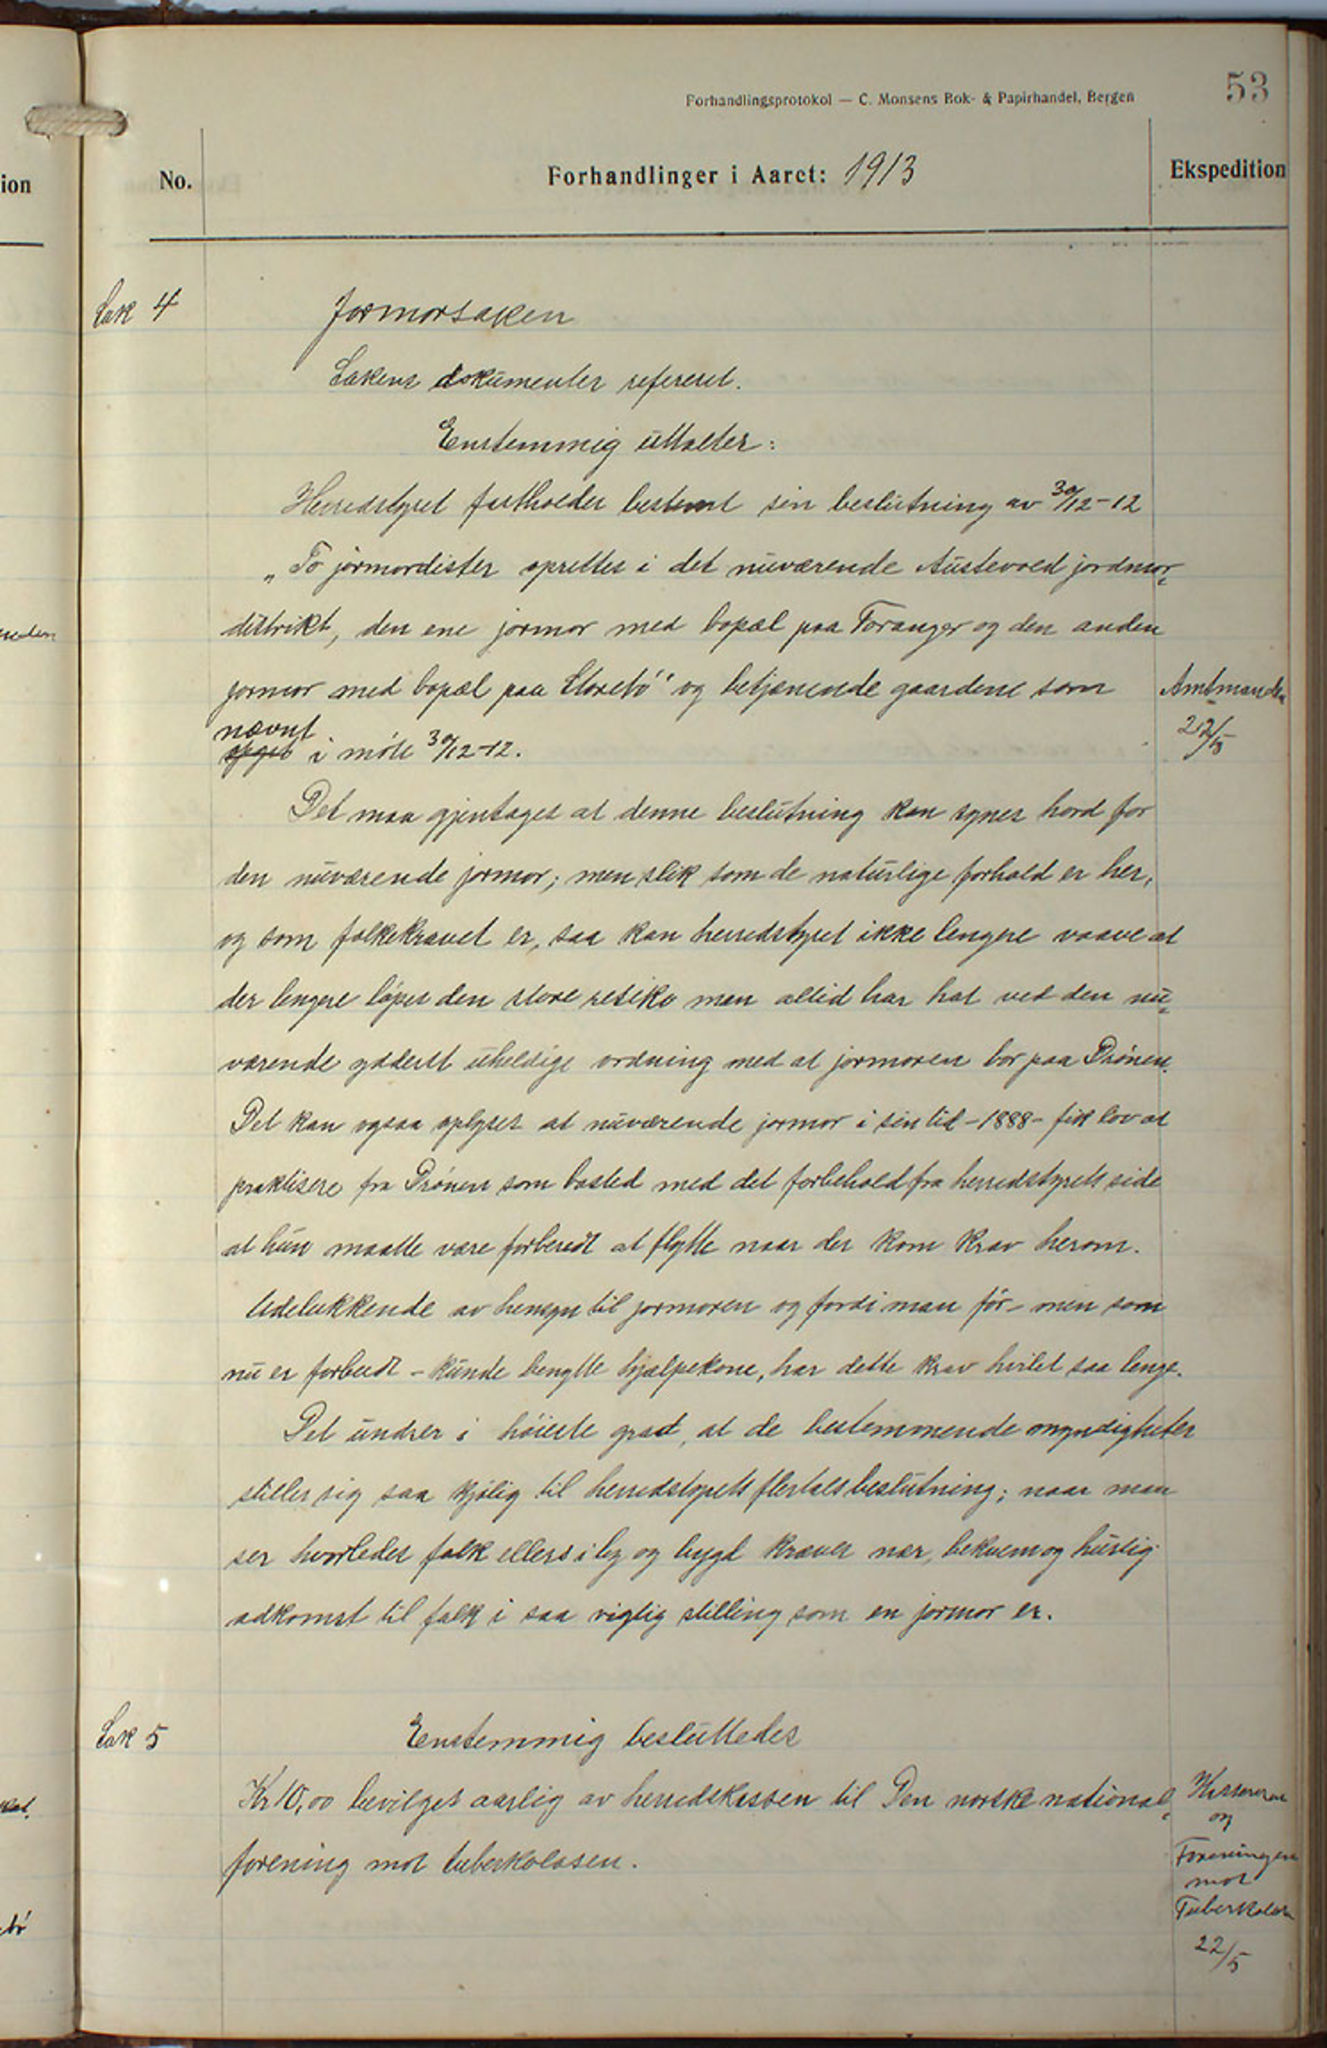 53
Forhandlingsprotokol — C. Monsens Bok- & Papirhandel, Bergen
No.
Forhandlinger i Aaret: 1913
Ekspedition
Sak 4
Jormorsaken
Sakens dokumenter refereret.
Enstemmig uttaltes:
Herredstyret fastholder bestemt sin beslutning av 30/12-12
„To jormordister oprettes i det nuværende Austevold jordmor-
distrikt, den ene jormor med bopæl paa Toranger og den anden
jormor med bopæl paa Storebö" og betjenende gaardene som
nævnt
i möte 30/12-12.
Amtmanden
22/5
Det maa gjentages at denne beslutning kan synes hard for
den nuværende jormor; men slik som de naturlige forhold er her,
og som folkekravet er, saa kan herredstyret ikke lengere vaave at
der lengere löpes den store resiko man altid har hat ved den nu-
værende yderst uheldige ordning med at jormoren bor paa Drönen.
Det kan ogsaa oplyses at nuværende jormor i sin tid -1888- fik lov at
praktisere fra Drönen som bosted med det forbehold fra herredstyrets side
at hun maatte være forberedt at flytte naar der kom krav herom.
Udelukkende av hensyn til jormoren og fordi man för - men som
nu er forbudt - kunde benytte hjælpekone, har dette krav hvilet saa lenge.
Det undrer i höieste grad, at de bestemmende myndigheter
stiller sig saa kjölig til herredstyrets flertalsbeslutning; naar man
ser hvorledes folk ellers i by og bygd kræver nær, bekvem og hurtig
adkomst til folk i saa vigtig stilling som en jormor er.
Sak 5
Enstemmig besluttedes
Kr 10,00 bevilges aarlig av herredskassen til Den norske national-
forening mot tuberkolosen.
Kasseren
og
Foreningen
mot
Tuberkolosen
22/5